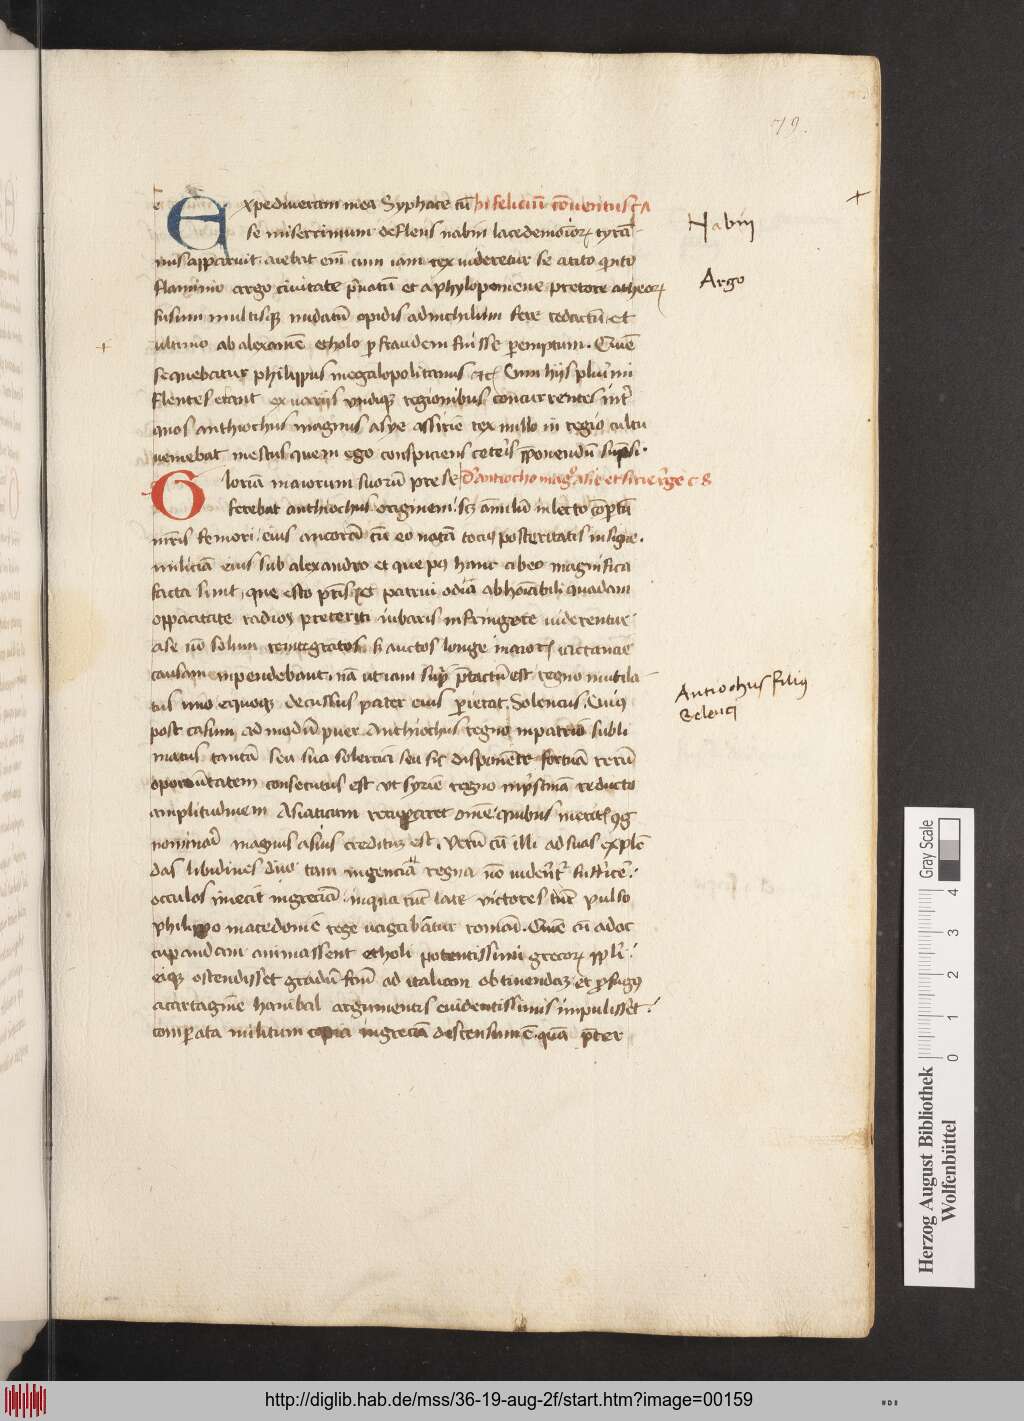 79.
Expediveram mea Syphace cū Infeliciū cōventus ca
se miserrimum deflens nabin lacedemoīor tyrā
nus apparuit aiebat em̄ cum iam rex videretur se a tito qnto
flaminio argo civitate p̄uatū et a phylopomene pretore atheor
fusum multisq nudatū opidis ad nichilum fere redactū et
ultimo ab alexamē etholo p fraudem fuisse peremptum. Quē
sequebatur philippus megalopolitanus etc̄ Cum hijs plurimi
flentes erant ex varijs undiq regionibus concurrentes int̄
quos anthiochus magnus asye assirie rex nullo in regio cultu
veniebat mestus quem ego conspiciens ceteris pponendū sūpsi.
Gloriā maiorum suorū pre se D' antiocho mag° asie et sirie rege c. 8
ferebat anthiochus originem. sz amilū in lecto cōptū
mr̄is femori eius ancorā cū eo natā tocius posteritatis insigne.
miliciā eius sub alexandro et que p9 hanc ab eo magnifica
facta sint, que esto pr̄is et patrui odia abhoīabili quadam
oppacitate radios preteriti iubaris infringere viderentur
a se nō solum reintegratos sz auctos longe maiores iactanciē
causam inpendebant. nā utcum sup ptactū est regno mutila
tus imo equoq decussus pater eius perierat. Solencus. Cuius
post casum admodū puer Anthiochus regno in patrio subli
matus tantā seu sua solercia seu sic disponente fortuā rerū
oportūtatem consecutus est ut syrie regno in pristinā reducto
amplitudinem Asiaticum recuperaret om̄e quibus meritis 9g
nominari magnus asius creditus est. Verū cū illi ad suas explē
das libidines duo tam ingencia regna nō viderēt sufficere.
occulos iniecit in greciā. in qua tūc late victores tūc pulso
philippo macedonie rege vagabātur romāi. Quē cū ad oc
cupandam animassent etholi potentissimi grecor ppli.
eiq ostendisset gradū firmū ad italicam obtinendā et profugus
a cartagine hanibal argumentis evidentissimis impulisset.
comparata militum copia in greciā descensum ē. quā preter
Nabin
Argo
Antiochus filius
Seleuci
Herzog August Bibliothek
Wolfenbüttel
Gray Scale
0 1 2 3 4
http://diglib.hab.de/mss/36-19-aug-2f/start.htm?image=00159